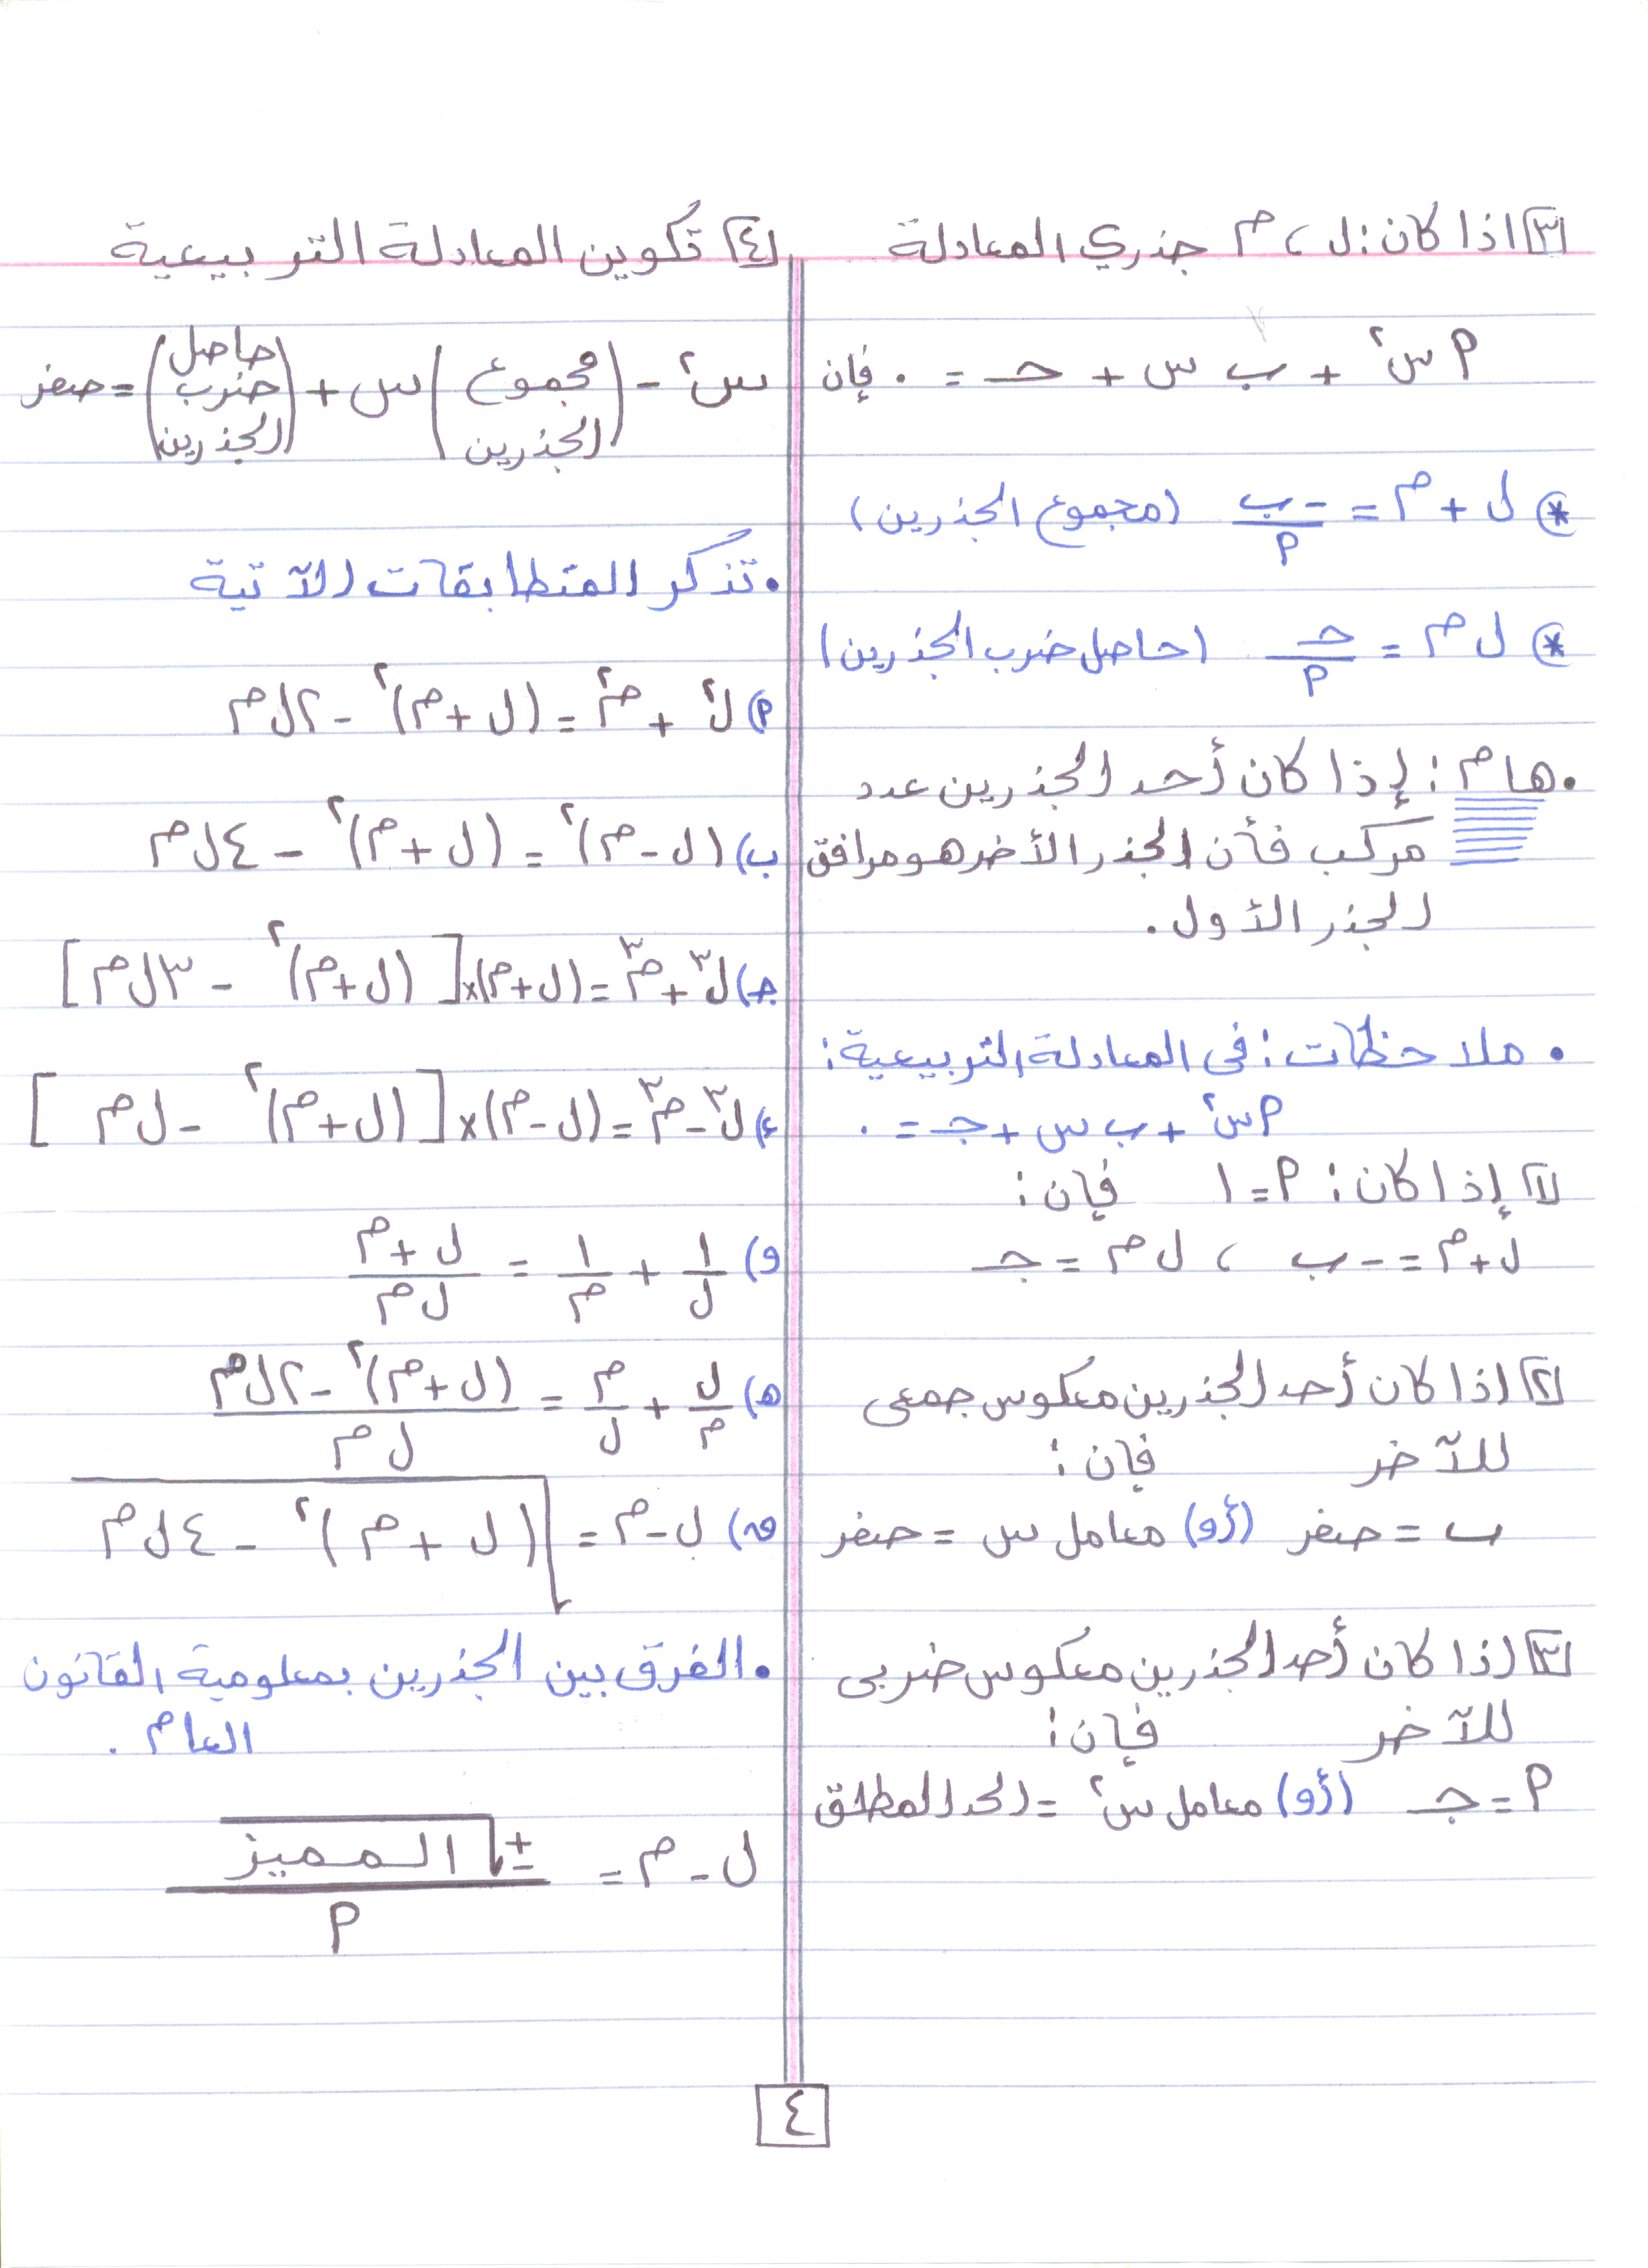 [٣] اذا كان: ل ، م جذري المعادلة
أ س٢ + ب س + حـ = ٠ فإن
* ل + م = -ب/أ (مجموع الجذرين)
* ل م = حـ/أ (حاصل ضرب الجذرين)
• هام : إذا كان أحد الجذرين عدد
مركب فأن الجذر الأخر هو مرافق
الجذر الأول.
• ملاحظات : فى المعادلة التربيعية :
أ س٢ + ب س + جـ = ٠
[١] إذا كان : أ = ١ فإن :
ل + م = - ب ، ل م = جـ
[٢] اذا كان أحد الجذرين معكوس جمعى
للآخر فإن :
ب = صفر (أو) معامل س = صفر
[٣] إذا كان أحد الجذرين معكوس ضربى
للآخر فإن :
أ = جـ (أو) معامل س٢ = الحد المطلق
[٤] تكوين المعادلة التربيعية
س٢ - (مجموع الجذرين) س + (حاصل ضرب الجذرين) = صفر
• تذكر المتطابقات الآتية
أ) ل٢ + م٢ = (ل + م)٢ - ٢ ل م
ب) (ل - م)٢ = (ل + م)٢ - ٤ ل م
جـ) ل٣ + م٣ = (ل + م) × [(ل + م)٢ - ٣ ل م]
ء) ل٣ - م٣ = (ل - م) × [(ل + م)٢ - ل م]
و) ١/ل + ١/م = (ل + م)/(ل م)
هـ) ل/م + م/ل = ((ل + م)٢ - ٢ ل م)/(ل م)
) ل - م = √((ل + م)٢ - ٤ ل م)
• الفرق بين الجذرين بمعلومية القانون
العام .
ل - م = ±√المميز / أ
٤